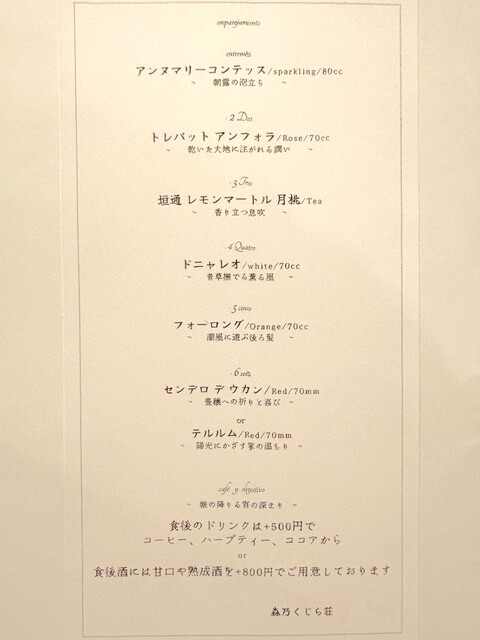 emparejamiento
entremés
アンヌマリーコンテッス/sparkling/80cc
~ 朝露の泡立ち ~
·2 Dos
トレパット アンフォラ/Rose/70cc
~ 乾いた大地に注がれる潤い ~
·3 Tres
垣通 レモンマートル 月桃/Tea
~ 香り立つ息吹 ~
·4 Quatro
ドニャレオ/white/70cc
~ 青草撫でる薫る風 ~
·5 cinco
フォーロング/Orange/70cc
~ 潮風に遊ぶ後ろ髪 ~
·6 seis
センデロ デ ウカン/Red/70mm
~ 豊穣への祈りと喜び ~
or
テルルム/Red/70mm
~ 陽光にかざす掌の温もり ~
café y digestivo
~ 帷の降りる宵の深まり ~
食後のドリンクは+500円で
コーヒー、ハーブティー、ココアから
or
食後酒には甘口や熟成酒を+800円でご用意しております
森乃くじら荘